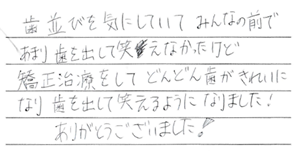 歯並びを気にしていて みんなの前で
あまり歯を出して笑えなかったけど
矯正治療をして どんどん歯がきれいに
なり歯を出して笑えるように なりました!
ありがとうございました!